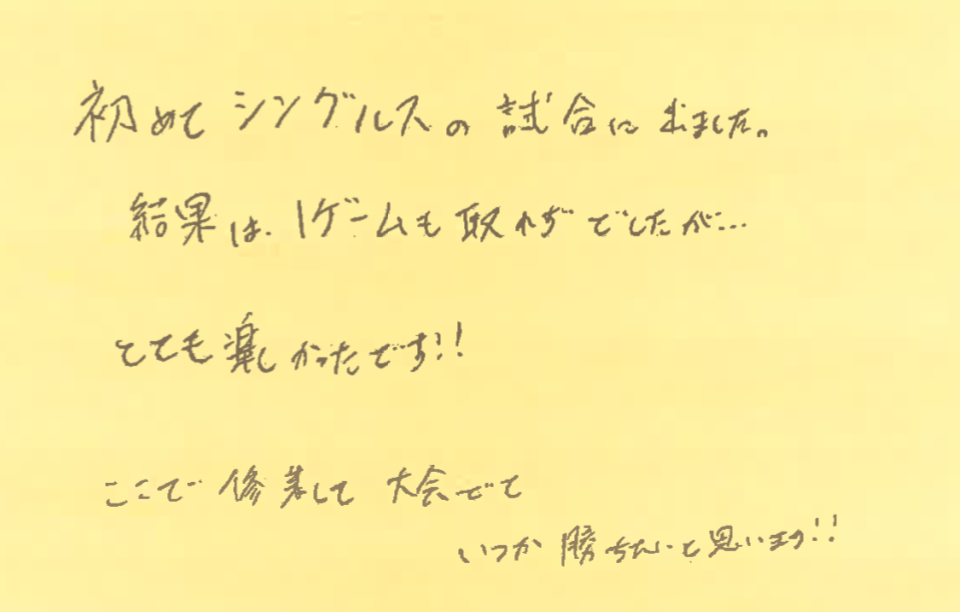 初めてシングルスの試合に出ました。
結果は、1ゲームも取れずでしたが…
とても楽しかったです!!
ここで修差して大会でて
いつか勝ちたいと思います!!